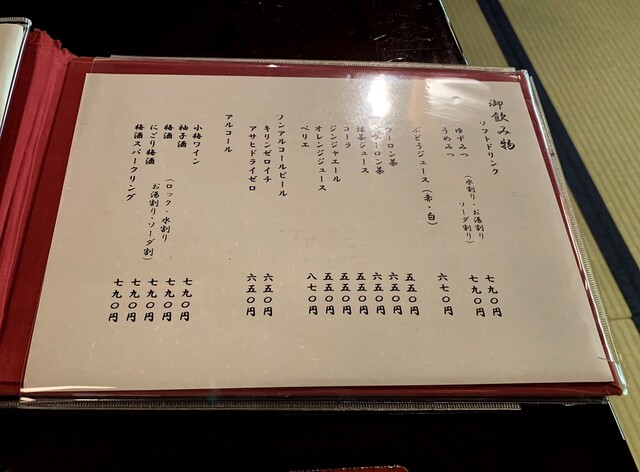 御飲み物
ソフトドリンク
ゆずみつ 七九〇円
うめみつ 七九〇円
(水割り・お湯割り
ソーダ割り)
ぶどうジュース(赤・白) 六七〇円
ウーロン茶 五五〇円
ーロン茶 六五〇円
抹茶ジュース 六五〇円
コーラ 五五〇円
ジンジャエール 五五〇円
オレンジジュース 五五〇円
ペリエ 八七〇円
ノンアルコールビール
キリンゼロイチ 六五〇円
アサヒドライゼロ 六五〇円
アルコール
小梅ワイン 七九〇円
柚子酒 七九〇円
梅酒 七九〇円
(ロック・水割り
お湯割り・ソーダ割)
にごり梅酒 七九〇円
梅酒スパークリング 七九〇円